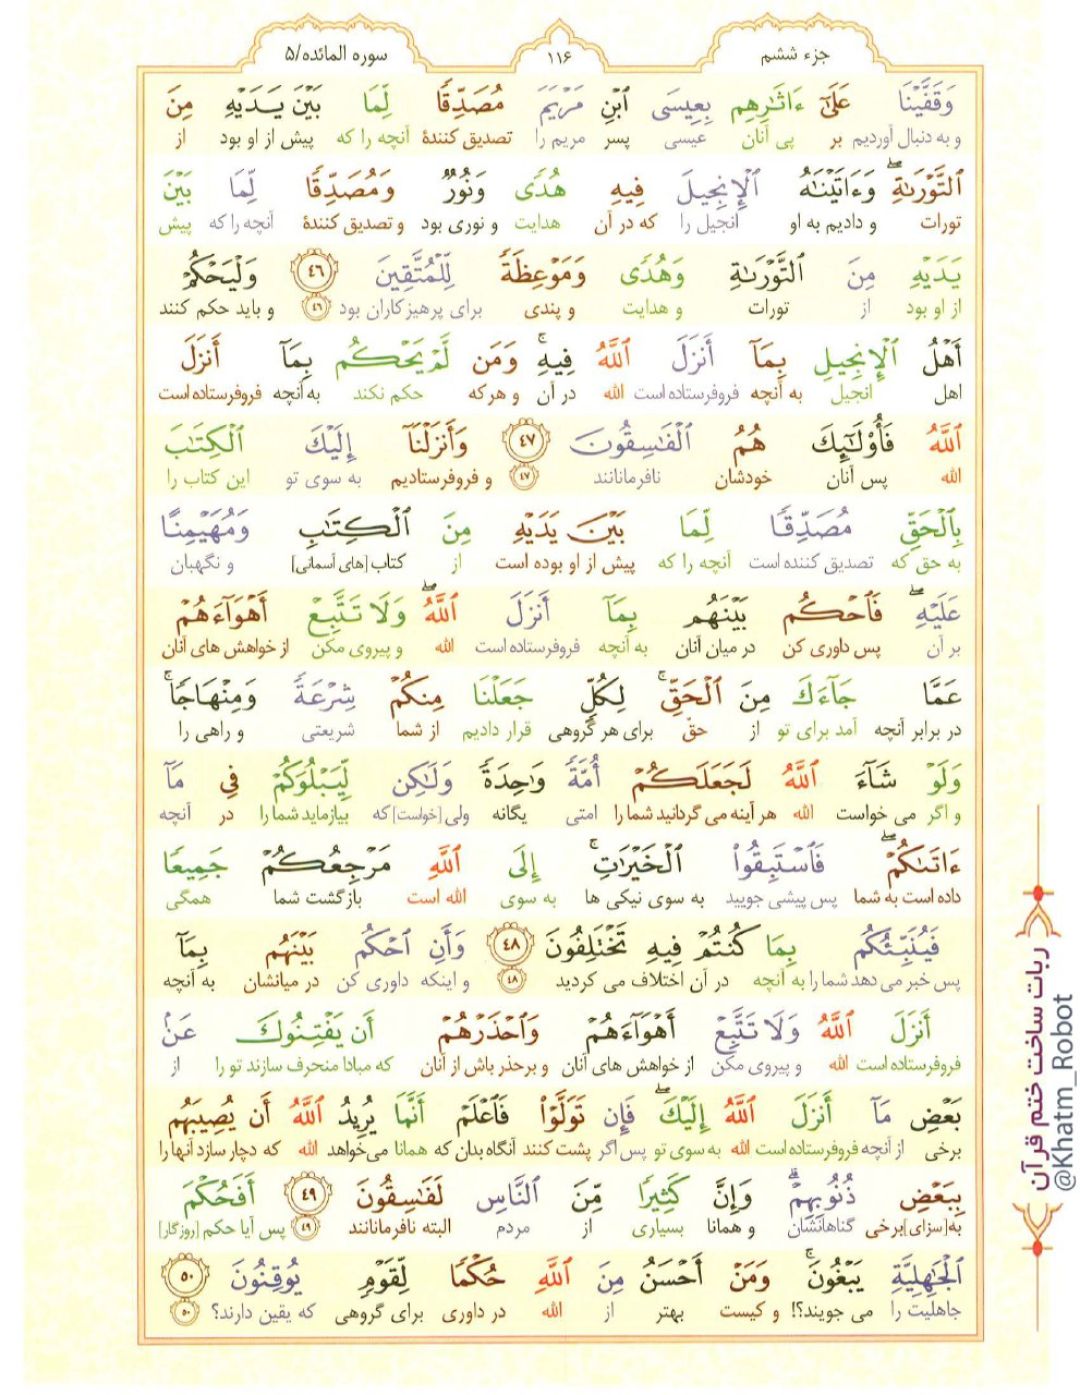 جزء ششم
۱۱۶
سوره المائده/۵
وَقَفَّيْنَا عَلَىٰٓ ءَاثَٰرِهِم بِعِيسَى ٱبْنِ مَرْيَمَ مُصَدِّقًا لِّمَا بَيْنَ يَدَيْهِ مِنَ
و به دنبال آوردیم بر پی آنان عیسی پسر مریم را تصدیق کنندهٔ آنچه را که پیش از او بود از
ٱلتَّوْرَىٰةِ ۖ وَءَاتَيْنَٰهُ ٱلْإِنجِيلَ فِيهِ هُدًى وَنُورٌ وَمُصَدِّقًا لِّمَا بَيْنَ
تورات و دادیم به او انجیل را که در آن هدایت و نوری بود و تصدیق کنندهٔ آنچه را که پیش
يَدَيْهِ مِنَ ٱلتَّوْرَىٰةِ وَهُدًى وَمَوْعِظَةً لِّلْمُتَّقِينَ ٤٦ وَلْيَحْكُمْ
از او بود از تورات و هدایت و پندی برای پرهیزکاران بود ٤٦ و باید حکم کنند
أَهْلُ ٱلْإِنجِيلِ بِمَآ أَنزَلَ ٱللَّهُ فِيهِ ۚ وَمَن لَّمْ يَحْكُم بِمَآ أَنزَلَ
اهل انجیل به آنچه فروفرستاده است الله در آن و هرکه حکم نکند به آنچه فروفرستاده است
ٱللَّهُ فَأُو۟لَٰٓئِكَ هُمُ ٱلْفَٰسِقُونَ ٤٧ وَأَنزَلْنَآ إِلَيْكَ ٱلْكِتَٰبَ
الله پس آنان خودشان نافرمانانند ٤٧ و فروفرستادیم به سوی تو این کتاب را
بِٱلْحَقِّ مُصَدِّقًا لِّمَا بَيْنَ يَدَيْهِ مِنَ ٱلْكِتَٰبِ وَمُهَيْمِنًا
به حق که تصدیق کننده است آنچه را که پیش از او بوده است از کتاب [های آسمانی] و نگهبان
عَلَيْهِ ۖ فَٱحْكُم بَيْنَهُم بِمَآ أَنزَلَ ٱللَّهُ ۖ وَلَا تَتَّبِعْ أَهْوَآءَهُمْ
بر آن پس داوری کن در میان آنان به آنچه فروفرستاده است الله و پیروی مکن از خواهش های آنان
عَمَّا جَآءَكَ مِنَ ٱلْحَقِّ ۚ لِكُلٍّ جَعَلْنَا مِنكُمْ شِرْعَةً وَمِنْهَاجًا ۚ
در برابر آنچه آمد برای تو از حق برای هر گروهی قرار دادیم از شما شریعتی و راهی را
وَلَوْ شَآءَ ٱللَّهُ لَجَعَلَكُمْ أُمَّةً وَٰحِدَةً وَلَٰكِن لِّيَبْلُوَكُمْ فِى مَآ
و اگر می خواست الله هر آینه می گردانید شما را امتی یگانه ولی [خواست] که بیازماید شما را در آنچه
ءَاتَىٰكُمْ ۖ فَٱسْتَبِقُوا۟ ٱلْخَيْرَٰتِ ۚ إِلَى ٱللَّهِ مَرْجِعُكُمْ جَمِيعًا
داده است به شما پس پیشی جویید به سوی نیکی ها به سوی الله است بازگشت شما همگی
فَيُنَبِّئُكُم بِمَا كُنتُمْ فِيهِ تَخْتَلِفُونَ ٤٨ وَأَنِ ٱحْكُم بَيْنَهُم بِمَآ
پس خبر می دهد شما را به آنچه در آن اختلاف می کردید ٤٨ و اینکه داوری کن در میانشان به آنچه
أَنزَلَ ٱللَّهُ وَلَا تَتَّبِعْ أَهْوَآءَهُمْ وَٱحْذَرْهُمْ أَن يَفْتِنُوكَ عَنۢ
فروفرستاده است الله و پیروی مکن از خواهش های آنان و برحذر باش از آنان که مبادا منحرف سازند تو را از
بَعْضِ مَآ أَنزَلَ ٱللَّهُ إِلَيْكَ ۖ فَإِن تَوَلَّوْا۟ فَٱعْلَمْ أَنَّمَا يُرِيدُ ٱللَّهُ أَن يُصِيبَهُم
برخی از آنچه فروفرستاده است الله به سوی تو پس اگر پشت کنند آنگاه بدان که همانا می‌خواهد الله که دچار سازد آنها را
بِبَعْضِ ذُنُوبِهِمْ ۗ وَإِنَّ كَثِيرًا مِّنَ ٱلنَّاسِ لَفَٰسِقُونَ ٤٩ أَفَحُكْمَ
به [سزای] برخی گناهانشان و همانا بسیاری از مردم البته نافرمانانند ٤٩ پس آیا حکم [روزگار]
ٱلْجَٰهِلِيَّةِ يَبْغُونَ ۚ وَمَنْ أَحْسَنُ مِنَ ٱللَّهِ حُكْمًا لِّقَوْمٍ يُوقِنُونَ ٥٠
جاهلیت را می جویند؟! و کیست بهتر از الله در داوری برای گروهی که یقین دارند؟ ٥٠
ربات ساخت ختم قرآن
@Khatm_Robot